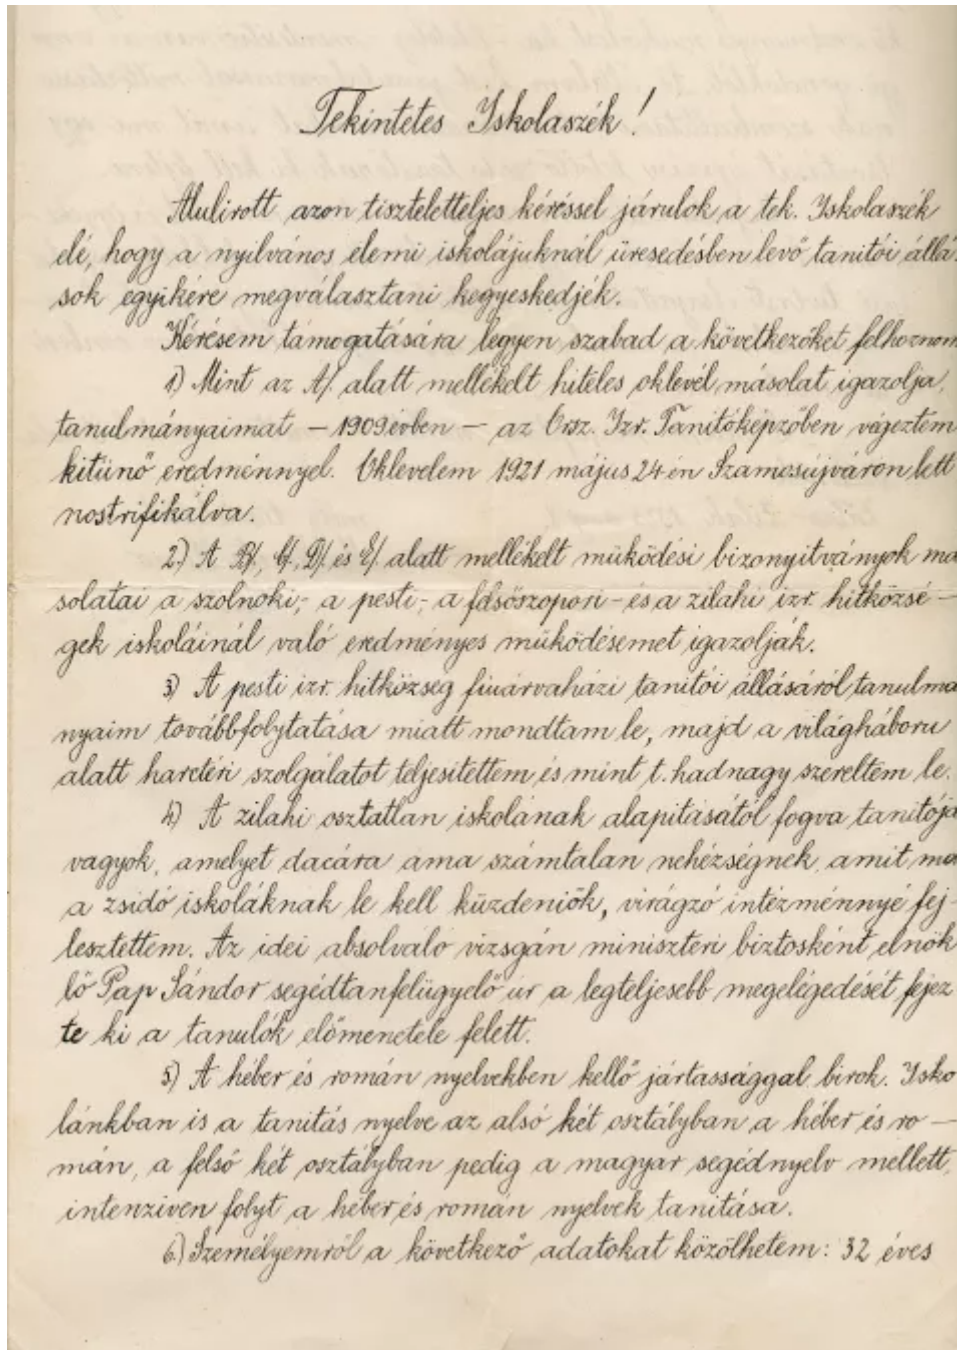 Tekintetes Iskolaszék!
Alulirott azon tiszteletteljes kéréssel járulok a tek. Iskolaszék
elé, hogy a nyilvános elemi iskolájuknál üresedésben levő tanitói állá-
sok egyikére megválasztani kegyeskedjék.
Kérésem támogatására legyen szabad a következőket felhoznom
1) Mint az A/. alatt mellékelt hiteles oklevél másolat igazolja,
tanulmányaimat – 1909 évben – az Orsz. Izr. Tanitóképzőben végeztem
kitünő eredménnyel. Oklevelem 1921 május 24-én Szamosújváron lett
nostrifikálva.
2.) A B/., C/., D/. és E/. alatt mellékelt müködési bizonyitványok má
solatai a szolnoki,- a pesti,- a felsőszopori- és a zilahi izr. hitközsé –
gek iskoláinál való eredményes müködésemet igazolják.
3) A pesti izr. hitközség fiuárvaházi tanitói állásáról tanulmá
nyaim továbbfolytatása miatt mondtam le, majd a világháboru
alatt harctéri szolgálatot teljesitettem és mint t. hadnagy szereltem le.
4) A zilahi osztatlan iskolának alapitásától fogva tanitója
vagyok, amelyet dacára ama számtalan nehézségnek, amit ma
a zsidó iskoláknak le kell küzdeniök, virágzó intézménnyé fej-
lesztettem. Az idei absolváló vizsgán miniszteri biztosként elnök
lő Pap Sándor segédtanfelügyelő úr a legteljesebb megelégedését fejez
te ki a tanulók előmenetele felett.
5) A héber és román nyelvekben kellő jártassággal birok. Isko
lánkban is a tanitás nyelve az alsó két osztályban a héber és ro –
mán, a felső két osztályban pedig a magyar segédnyelv mellett,
intenziven folyt a héber és román nyelvek tanitása.
6.) Személyemről a következő adatokat közölhetem: 32 éves